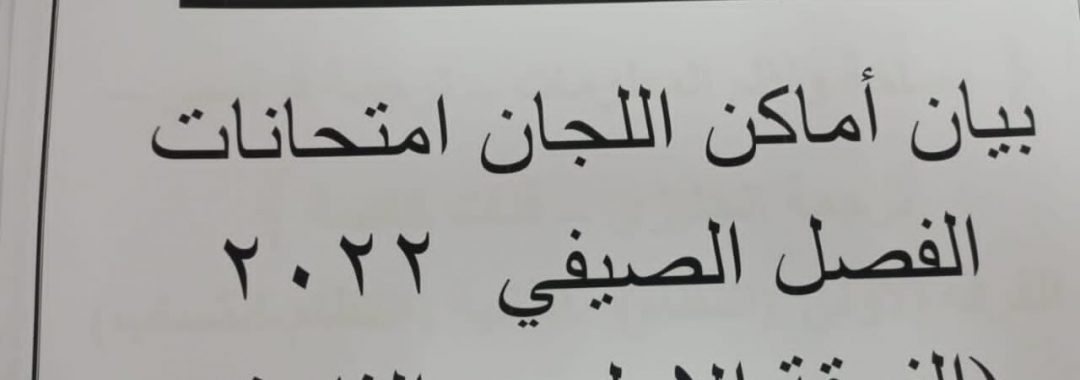 بيان أماكن اللجان امتحانات
الفصل الصيفي ٢٠٢٢